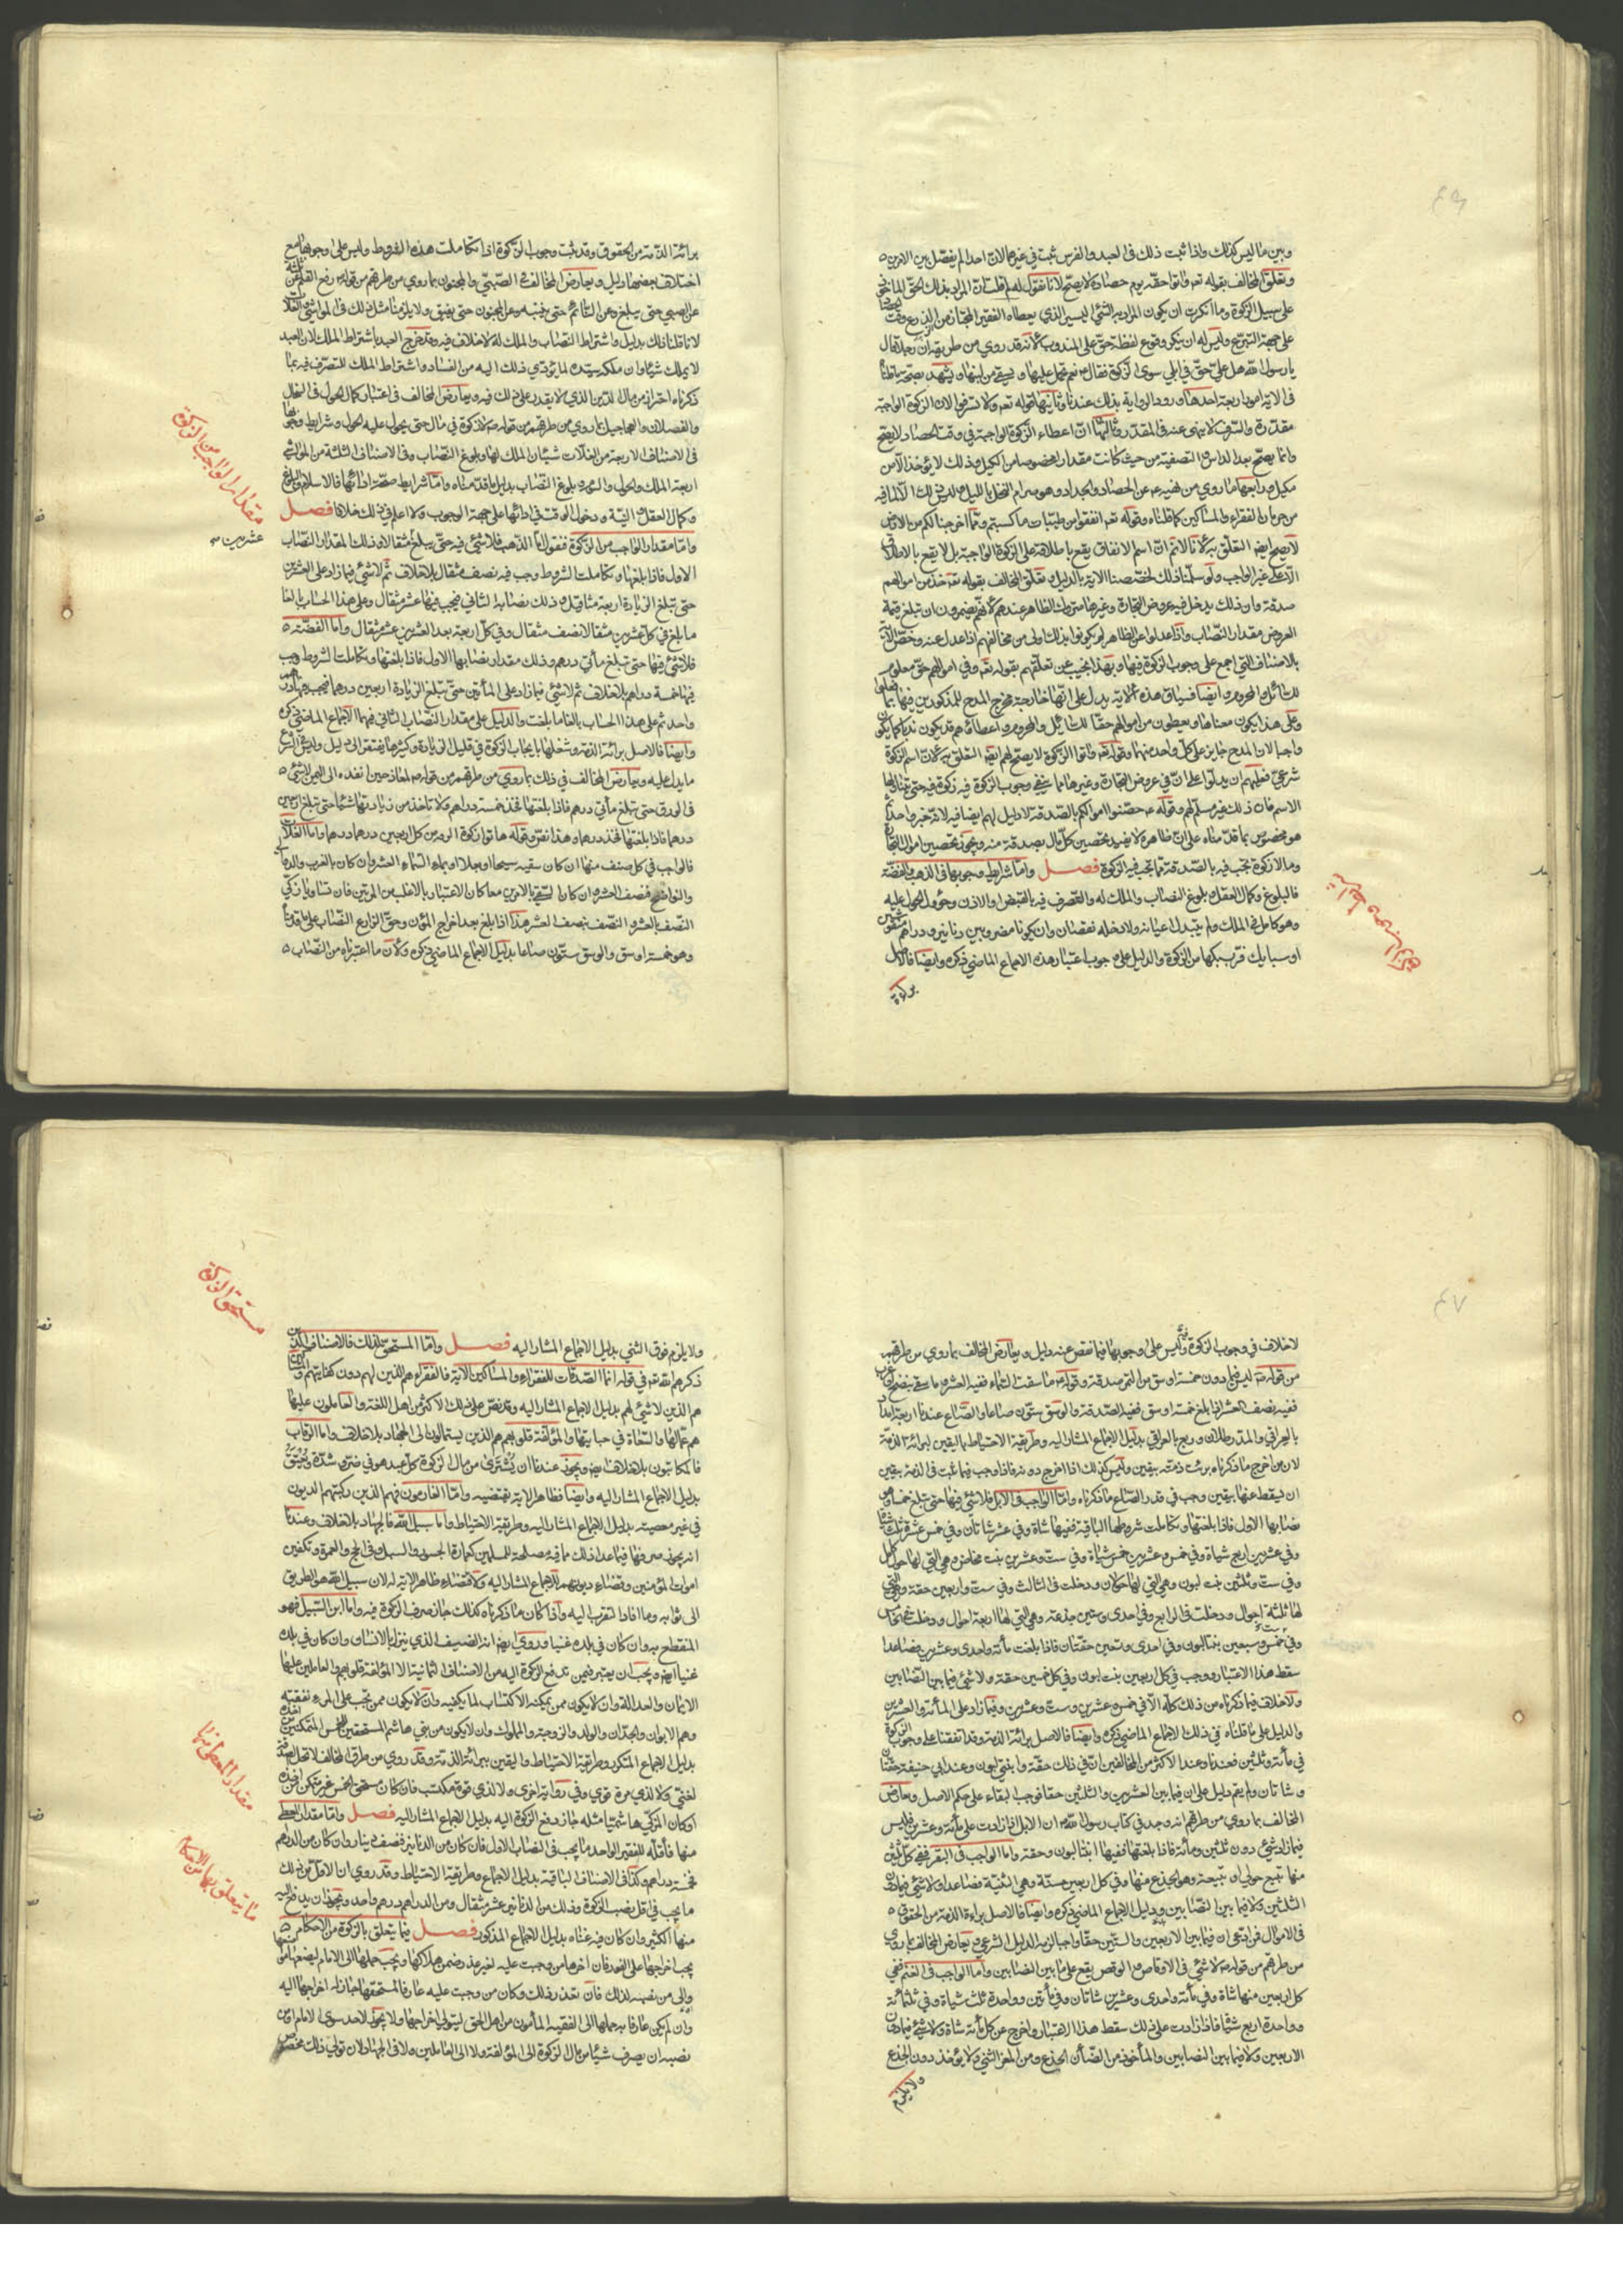 وبين ما ليس كذلك واذا ثبت ذلك في العبد والفرس ثبت في غيرهما لان احدا لم يفصل بين الامرين
وتعلق المخالف بقوله تعم واتوا حقه يوم حصاده لا يصح لانا نقول لهم
على سبيل الزكوة وما انكرت ان يكون المراد به الشئ اليسير الذي يعطاه الفقير المجتاز من الزرع وقت
على جهة التبرع وليس له ان ينكر وقوع لفظة حق على المندوب لانه قد روي من طريقه ان رجلا قال
يا رسول الله هل علي حق في ابلي سوى الزكوة فقال نعم تحمل عليها وتسقي من لبنها ويشهد بصحة
في الاية امور اربعة احدها ورود الرواية بذلك عندنا وثانيها قوله تعم ولا تسرفوا لان الزكوة الواجبة
مقدرة والسرف لا ينهى عنه في المقدر وثالثها ان اعطاء الزكوة الواجبة في وقت الحصاد لا يصح
وانما يصح بعد الدياس والتصفية من حيث كانت مقدارا مخصوصا من الكيل وذلك لا يؤخذ الا من
مكيل ورابعها ما روي من نهيه عم عن الحصاد والجداد وهو صرام النخل بالليل
من حرمان الفقراء والمساكين كما قلناه وقوله تعم انفقوا من طيبات ما كسبتم ومما اخرجنا لكم من الارض
لا يصح ايضا التعلق به لانا لانم ان اسم الانفاق يقع باطلاقه على الزكوة الواجبة بل لا يقع بالاطلاق
الا على غير الواجب ولو سلمنا ذلك لخصصنا الاية بالدليل وتعلق المخالف بقوله تعم خذ من اموالهم
صدقة وان ذلك يدخل فيه عروض التجارة وغيرها متروك الظاهر عندهم لانهم يضمرون ان تبلغ قيمة
العروض مقدار النصاب واذا عدلوا عن الظاهر لم يكونوا بذلك اولى من مخالفهم اذا عدل عنه وخص الاية
بالاصناف التي اجمع على وجوب الزكوة فيها وبهذا نجيب عن تعلقهم بقوله تعم وفي اموالهم حق معلوم
للسائل والمحروم وايضا فسياق هذه الاية يدل على انها خارجة مخرج المدح للمذكورين فيها بما
وعلى هذا يكون معناها ويعطون من اموالهم حقا للسائل والمحروم واعطائهم قد يكون ندبا كما يكون
واجبا لان المدح جايز على كل واحد منهما وقوله تعم واتوا الزكوة لا يصح لهم ايضا التعلق به لان اسم الزكوة
شرعي فعليهم ان يدلوا على ان في عروض التجارة وغيرها مما ينفي وجوب الزكوة فيه زكوة فيه حتى يتناولها
الاسم فان ذلك غير مسلم لهم وقوله عم حصنوا اموالكم بالصدقة لا دليل لهم ايضا فيه لانه خبر واحد
هو مخصوص بما قدمناه على ان ظاهره لا يفيد تحصين كل مال بصدقة منه ويجوز تحصين اموال التجارة
وما لا زكوة تجب فيه بالصدقة مما تجب فيه الزكوة فصل واما شرايط وجوبها في الذهب والفضة
فالبلوغ وكمال العقل وبلوغ النصاب والملك له والتصرف فيه بالقبض والاذن وحؤول الحول عليه
وهو كامل في الملك ولم يتبدل اعيانه ولا دخله نقصان وان يكونا مضروبين دنانير ودراهم منقوشين
او سبايك فر بسبكها من الزكوة والدليل على وجوب اعتبار هذه الاجماع الماضي ذكره وايضا فالاصل
برائة
برائة الذمة من الحقوق وقد ثبت وجوب الزكوة اذا تكاملت هذه الشروط وليس على وجوبها مع
اختلاف بعضها دليل ويعارض المخالف في الصبي والمجنون بما روي من طرقهم من قوله رفع القلم عن ثلثة
عن الصبي حتى يبلغ وعن النائم حتى ينتبه وعن المجنون حتى يفيق ولا يلزمنا مثل ذلك في المواشي والغلات
لانا قلنا ذلك بدليل واشتراط النصاب والملك له لا خلاف فيه وقد خرج العبد باشتراط الملك لان العبد
لا يملك شيئا وان ملكه سيده لما يؤدي ذلك اليه من الفساد واشتراط الملك للتصرف فيه بما
ذكرناه احترازا من مال الدين الذي لا يقدر على ذلك فيه ويعارض المخالف في اعتبار كمال الحول في السخال
والفصلان والعجاجيل بما روي من طرقهم من قوله لا زكوة في مال حتى يحول عليه الحول وشرايط وجوبها
في الاصناف الاربعة من الغلات شيئان الملك لها وبلوغ النصاب وفي الاصناف الثلثة من المواشي
اربعة الملك والحول والسوم وبلوغ النصاب بدليل ما قدمناه واما شرايط صحة ادائها فالاسلام والبلوغ
وكمال العقل والنية ودخول الوقت في ادائها على جهة الوجوب ولا اعلم في ذلك خلافا فصل
مقدار الواجب من الزكوة
واما مقدار الواجب من الزكوة فنقول اما الذهب فلا شئ فيه حتى يبلغ مثقالا وذلك المقدار النصاب
عشرين
الاول فاذا بلغها وتكاملت الشروط وجب فيه نصف مثقال بلا خلاف ثم لا شئ فيما زاد على العشرين
حتى تبلغ الزيادة اربعة مثاقيل وذلك نصابه الثاني فيجب فيها عشر مثقال وعلى هذا الحساب بالغا
ما بلغ في كل عشرين مثقالا نصف مثقال وفي كل اربعة بعد العشرين عشر مثقال واما الفضة
فلا شئ فيها حتى تبلغ مأتي درهم وذلك مقدار نصابها الاول فاذا بلغتها وتكاملت الشروط وجب
فيها خمسة دراهم بلا خلاف ثم لا شئ فيما زاد على المأتين حتى تبلغ الزيادة اربعين درهما فيجب فيها درهم
واحد ثم على هذا الحساب بالغا ما بلغت والدليل على مقدار النصاب الثاني فيهما الاجماع الماضي ذكره
وايضا فالاصل برائة الذمة وشغلها بايجاب الزكوة في قليل الزيادة وكثيرها يفتقر الى دليل وليس في الشرع
ما يدل عليه ويعارض المخالف في ذلك بما روي من طرقهم من قوله لمعاذ حين انفذه الى اليمن لا شئ
في الورق حتى تبلغ مأتي درهم فاذا بلغتها فخذ خمسة دراهم ولا تاخذ من زيادتها شيئا حتى تبلغ اربعين
درهما فاذا بلغتها فخذ درهم وهذا نص وقوله هاتوا زكوة الورق من كل اربعين درهما درهم واما الغلات
فالواجب في كل صنف منها ان كان سقيه سيحا او بعلا او بماء السماء العشر وان كان بالغرب والدوالي
والنواضح فنصف العشر وان كان السقي بالامرين معا كان الاعتبار بالاغلب من المدتين فان تساويا زكي
النصف بالعشر والنصف بنصف العشر هذا اذا بلغ بعد اخراج المؤن وحق الزارع النصاب على ما قدمناه
وهو خمسة اوسق والوسق ستون صاعا بدليل الاجماع الماضي ذكره ولان ما اعتبرناه من النصاب
لا خلاف في وجوب الزكوة فيه وليس على وجوبها فيما نقص عنه دليل ويعارض المخالف بما روي من طرقهم
من قوله ليس فيما دون خمسة اوسق من التمر صدقة وقوله ما سقت السماء ففيه العشر وما سقي بنضح او غرب
ففيه نصف العشر اذا بلغ خمسة اوسق ففيه الصدقة والوسق ستون صاعا والصاع عندنا اربعة امداد
بالعراقي والمد رطلان وربع بالعراقي بدليل الاجماع المشار اليه وطريقة الاحتياط واليقين لبرائة الذمة
لان من اخرج ما ذكرناه برئت ذمته بيقين وليس كذلك اذا اخرج دونه فاذا وجب فيما ثبت في الذمة بيقين
ان يسقط عنها بيقين وجب في قدر الصاع ما ذكرناه واما الواجب في الابل فلا شئ فيها حتى تبلغ خمسا وهو
نصابها الاول فاذا بلغتها وتكاملت شروطها الباقية ففيها شاة وفي عشر شاتان وفي خمس عشرة ثلث شياه
وفي عشرين اربع شياة وفي خمس وعشرين خمس شياة وفي ست وعشرين بنت مخاض وهي التي لها حول كامل
وفي ست وثلثين بنت لبون وهي التي لها حولان ودخلت في الثالث وفي ست واربعين حقة وهي التي
لها ثلثة احوال ودخلت في الرابع وفي احدى وستين جذعة وهي التي لها اربعة احوال ودخلت في الخامس
وفي ست وسبعين بنتا لبون وفي احدى وتسعين حقتان فاذا بلغت مأئة واحدى وعشرين فصاعدا
سقط هذا الاعتبار ووجب في كل اربعين بنت لبون وفي كل خمسين حقة ولا شئ فيما بين النصابين
ولا خلاف فيما ذكرناه من ذلك كله الا في خمس وعشرين وست وعشرين وفيما زاد على المأئة والعشرين
والدليل على ما قلناه في ذلك الاجماع الماضي ذكره وايضا فالاصل برائة الذمة وقد اتفقنا على وجوب الزكوة
في مأئة وثلثين فعندنا وعند الاكثر من المخالفين ان في ذلك حقة وابنتي لبون وعند ابي حنيفة حقتان
وشاتان ولم يقم دليل على ان فيما بين العشرين والثلثين حقا فوجب البقاء على حكم الاصل ويعارض
المخالف بما روي من طرقهم انه وجد في كتاب رسول الله ان الابل اذا زادت على مأئة وعشرين فليس
فيما زاد شئ دون ثلثين ومأئة فاذا بلغتها ففيها ابنتا لبون وحقة واما الواجب في البقر ففي كل ثلثين
منها تبيع حولي او تبيعة وهو الجذع منها وفي كل اربعين مسنة وهي الثنية فصاعدا ولا شئ فيما دون
الثلثين ولا فيما بين النصابين ودليل الاجماع الماضي ذكره وايضا فالاصل براءة الذمة من الحقوق
في الاموال فمن ادعى ان فيما بين الاربعين والستين حقا واجبا لزمه الدليل الشرعي ويعارض المخالف بما روي
من طرقهم من قوله لا شئ في الاوقاص والوقص يقع على ما بين النصابين واما الواجب في الغنم ففي
كل اربعين منها شاة وفي مأئة واحدى وعشرين شاتان وفي مأتين وواحدة ثلث شياة وفي ثلثمائة
وواحدة اربع شياة فاذا زادت على ذلك سقط هذا الاعتبار واخرج عن كل مأئة شاة ولا شئ فيما دون
الاربعين ولا فيما بين النصابين والمأخوذ من الضأن الجذع ومن المعز الثني ولا يؤخذ دون الجذع
ولا يلزم
مستحق الزكوة
ولا يلزم فوق الثني بدليل الاجماع المشار اليه فصل واما المستحق لذلك فالاصناف الذين
ذكرهم الله تعم في قوله انما الصدقات للفقراء والمساكين الاية فالفقراء هم الذين لهم دون كفايتهم والمساكين
هم الذين لا شئ لهم بدليل الاجماع المشار اليه وقد نص على ذلك الاكثر من اهل اللغة والعاملون عليها
هم عمالها والسعاة في جبايتها والمؤلفة قلوبهم هم الذين يستمالون الى الجهاد بلا خلاف واما الرقاب
فالمكاتبون بلا خلاف ويجوز عندنا ان يشترى من مال الزكوة كل عبد هو في ضر وشدة ويعتق
بدليل الاجماع المشار اليه وايضا فظاهر الاية يقتضيه واما الغارمون فهم الذين ركبتهم الديون
في غير معصية بدليل الاجماع المشار اليه وطريقة الاحتياط واما سبيل الله فالجهاد بلا خلاف وعندنا
انه يجوز صرفها فيما عدا ذلك مما فيه مصلحة للمسلمين كعمارة الجسور والسبل وفي الحج والعمرة وتكفين
اموات المؤمنين وقضاء ديونهم للاجماع المشار اليه ولاقتضاء ظاهر الاية له لان سبيل الله هو الطريق
الى ثوابه وما افاد التقرب اليه واذا كان ما ذكرناه كذلك جاز صرف الزكوة فيه واما ابن السبيل فهو
المنقطع به وان كان في بلده غنيا وروي ايضا انه الضيف الذي ينزل بالانسان وان كان في بلده
غنيا ايضا ويجب ان يعتبر فيمن تدفع الزكوة اليه من الاصناف الثمانية الا المؤلفة قلوبهم والعاملين عليها
الايمان والعدالة وان لا يكون ممن يمكنه الاكتساب لما يكفيه وان لا يكون ممن تجب على المرء نفقته
وهم الابوان والجدان والولد والزوجة والمملوك وان لا يكون من بني هاشم المستحقين الخمس المتمكنين من اخذه
بدليل الاجماع المتكرر وطريقة الاحتياط واليقين ببرائة الذمة وقد روي من طرق المخالف لا تحل الصدقة
لغني ولا لذي مرة قوي وفي رواية اخرى ولا لذي قوة مكتسب فان كان مستحق الخمس غير متمكن من اخذه
او كان المزكي هاشميا مثله جاز دفع الزكوة اليه بدليل الاجماع المشار اليه فصل واما مقدار المعطى
مقدار المعطى منها
منها فاقله للفقير الواحد ما يجب في النصاب الاول فان كان من الدنانير فنصف دينار وان كان من الدراهم
فخمسة دراهم وكذا في الاصناف الباقية بدليل الاجماع وطريقة الاحتياط وقد روي ان الاقل من ذلك
ما يجب في اقل نصب الزكوة وذلك من الدنانير عشر مثقال ومن الدراهم درهم واحد ويجوز ان يدفع اليه
منها الكثير وان كان فيه غناه بدليل الاجماع المذكور فصل فيما يتعلق بالزكوة من الاحكام
ما يتعلق بها من الاحكام
يجب اخراجها على الفور فان اخرها من وجبت عليه لغير عذر ضمن هلاكها ويجب حملها الى الامام ليضعها مواضعها
والى من نصبه لذلك فان تعذر ذلك وكان من وجبت عليه عارفا لمستحقها جاز له اخراجها اليه
وان لم يكن عارفا به حملها الى الفقيه المأمون من اهل الحق ليتولى اخراجها ولا يجوز لاحد سوى الامام او من
نصبه ان يصرف شيئا من مال الزكوة الى المؤلفة ولا الى العاملين ولا في الجهاد لان تولي ذلك مخصوص